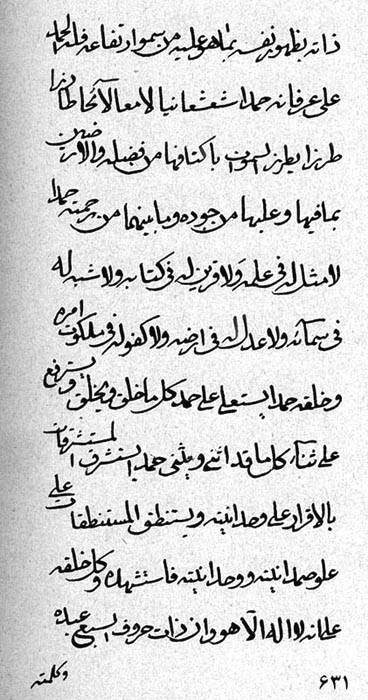 ذاته بظهور نفسه بما هو عليه من سمو ارتفاعه فله الحمد
على عرفانه حمدا شعشعانيا لامعا لائحا طارزا
طرزا يطرز السموات باكنافها من فضيله والارضين
بما فيها وعليها من جوده وما بينهما من رحمته حمدا
لا مثل له في علمه ولا قرين له في كتابه ولا شبه له
في سمائه ولا عدل له في ارضه ولا كفو له في ملكوت امره
وخلقه حمدا يستعلي على حمد كل ما خلق ويخلق ويرتفع
على ثناء كل ما قد اثني ويثنى حمدا يستشرق المستشرقات
بالاقرار على وحدانيته ويستنطق المستنطقات على
علو صمدانيته ووحدانيته فاستشهده وكل خلقه
على انه لا اله الا هو وان ذات حروف السبع عبده
وكلمته
٦٣١